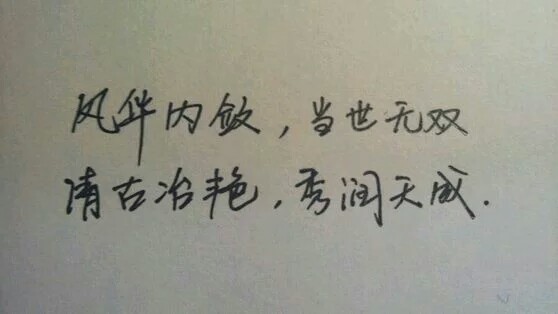 风华内敛，当世无双
清古冶艳，秀润天成.